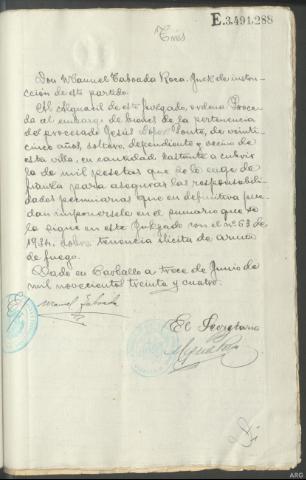 E.3.491.288
Tres
Don Manuel Taboada Roca, Juez de instruc-
cción de este partido.
Al Alguacil de este Juzgado, ordena proce-
da al embargo de bienes de la pertenencia
del procesado Jesús López Ponte, de veinti-
cinco años, soltero, dependiente y vecino de
esta villa, en cantidad bastante a cubrir
la de mil pesetas que se le exige de
fianza para asegurar las responsabili-
dades pecuniarias que en definitiva pue-
dan imponersele en el sumario que se
le sigue en este Juzgado con el nº 63 de
1934, sobre tenencia ilícita de armas
de fuego.
Dado en Carballo a trece de Junio de
mil novecientos treinta y cuatro.
Manuel Taboada
El Secretario
ARG